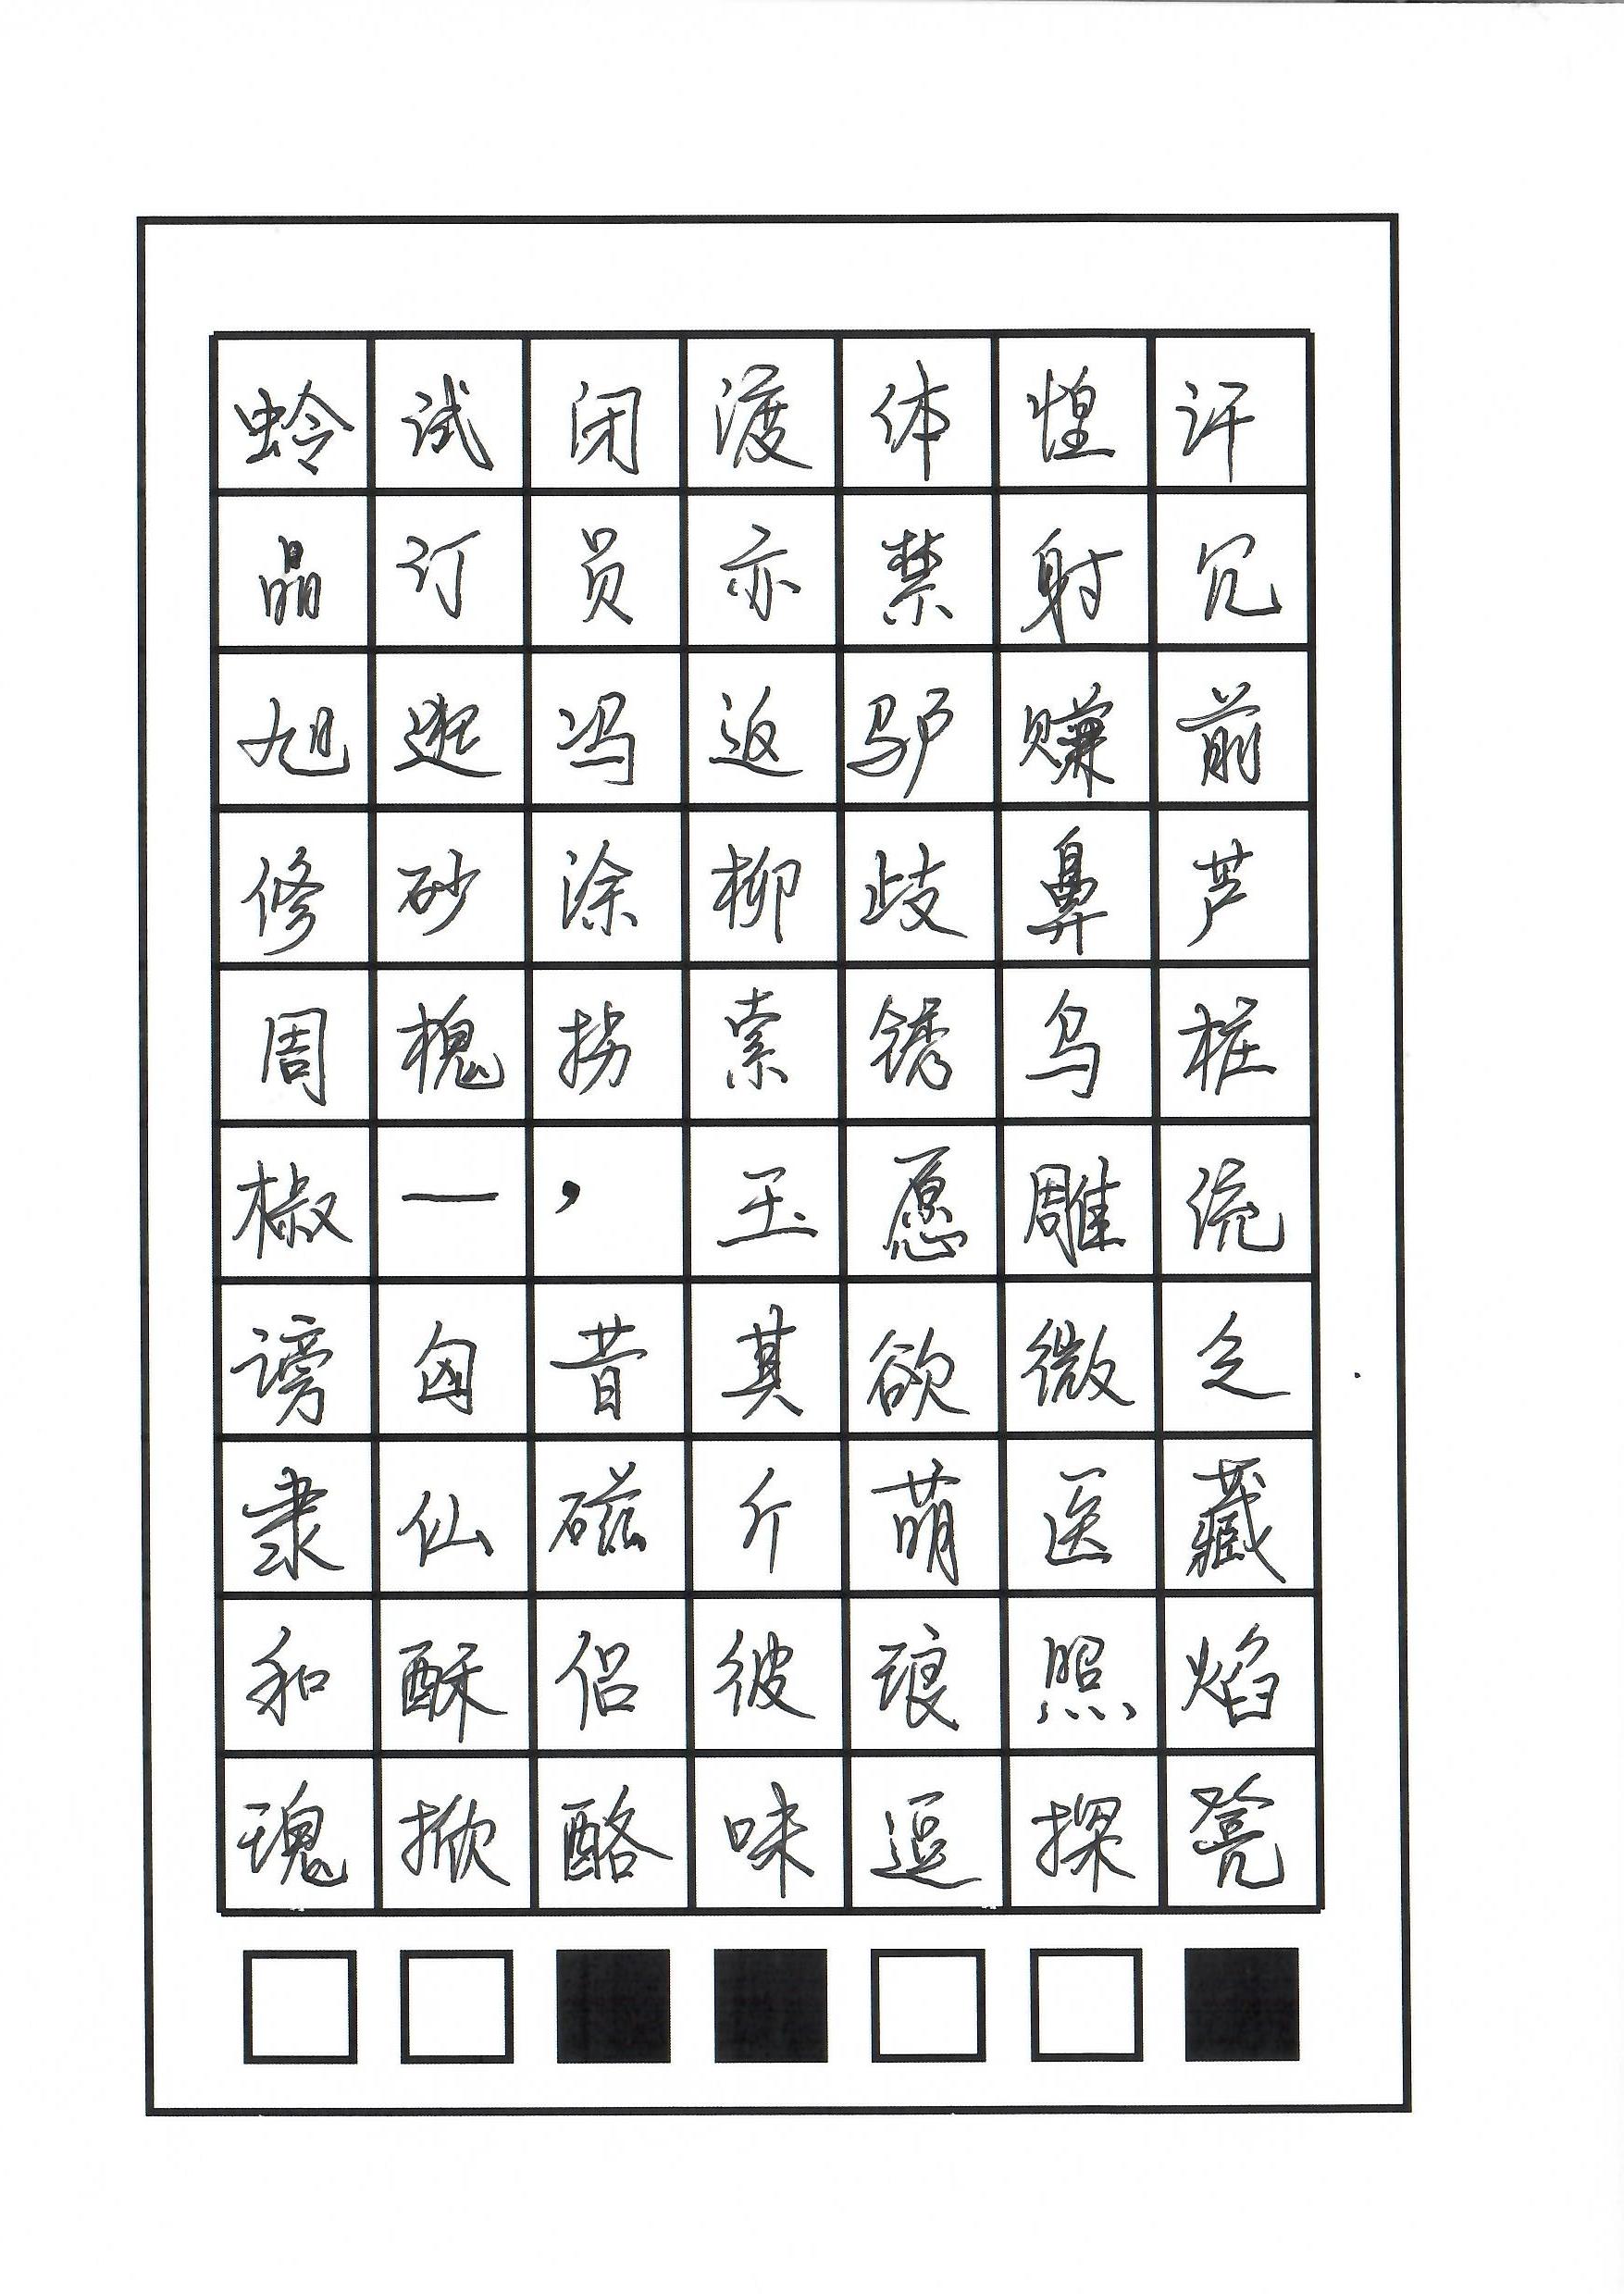 蛉试闭渡体惶讦
晶订员亦禁射冗
旭逛冯返驴赚前
修砂涂柳歧鼻芦
周槐拐索锈乌桩
椒一，玉愿雕统
谤囱昔其欲微乏
隶仙磁斤萌医藏
和酥侣彼琅照焰
瑰掀酪味逗探凳